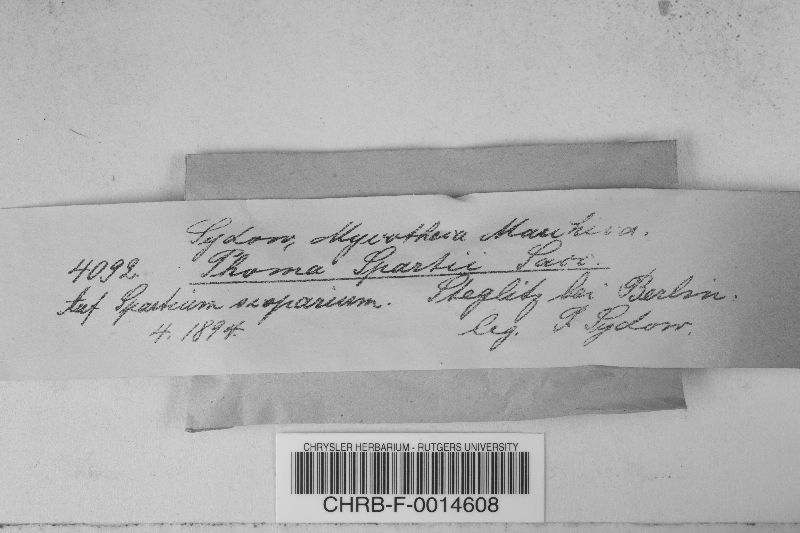 Sydow, Mycotheca Marchica.
4092. Phoma Spartii Sacc.
Auf Spartium scoparium. Steglitz bei Berlin.
4. 1894. leg. P. Sydow.
CHRYSLER HERBARIUM - RUTGERS UNIVERSITY
CHRB-F-0014608